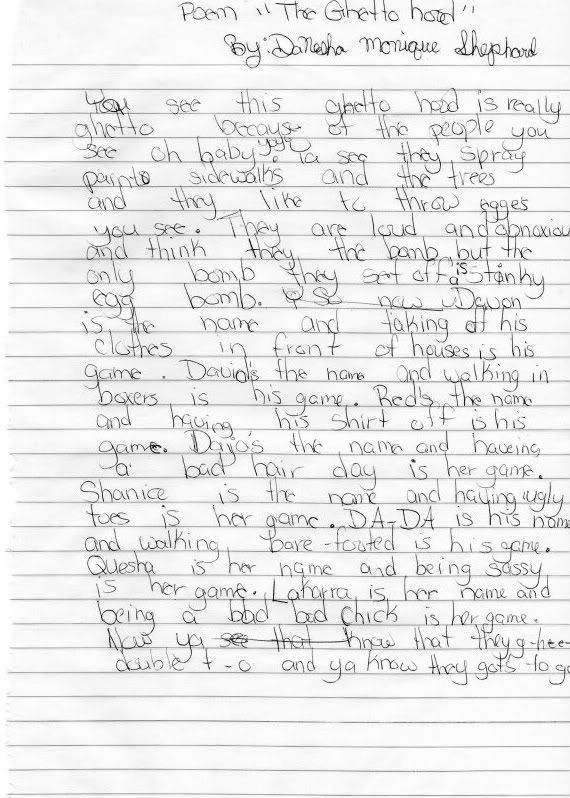 Poem "The Ghetto hood"
By: DaNesha Monique Shephard
You see this ghetto hood is really
ghetto because of the people you
see oh baby. Ya see they spray
paint sidewalks and the trees
and they like to throw egges
you see. They are loud and obnoxiou
and think they the bomb but the
only bomb they set off is a stanky
egg bomb. So now Devon
is the name and taking off his
clothes in front of houses is his
game. David's the name and walking in
boxers is his game. Red's the name
and having his shirt off is his
game. Dajo's the name and haveing
a bad hair day is her game.
Shanice is the name and having ugly
toes is her game. DA-DA is his name
and walking bare-footed is his game.
Quesha is her name and being sassy
is her game. Lakarra is her name and
being a bad bad chick is her game.
Now ya see that know that they g-hee-
double t-o and ya know they gots to go